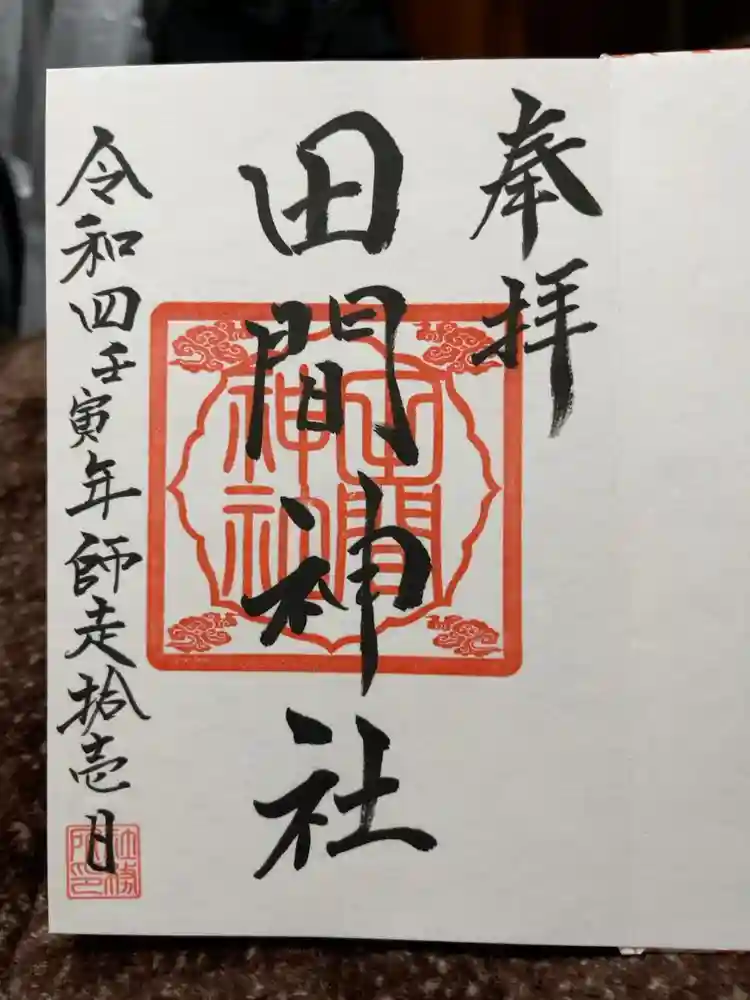 奉拝
田間神社
令和四壬寅年師走拾壱日
田間神社
社務所印